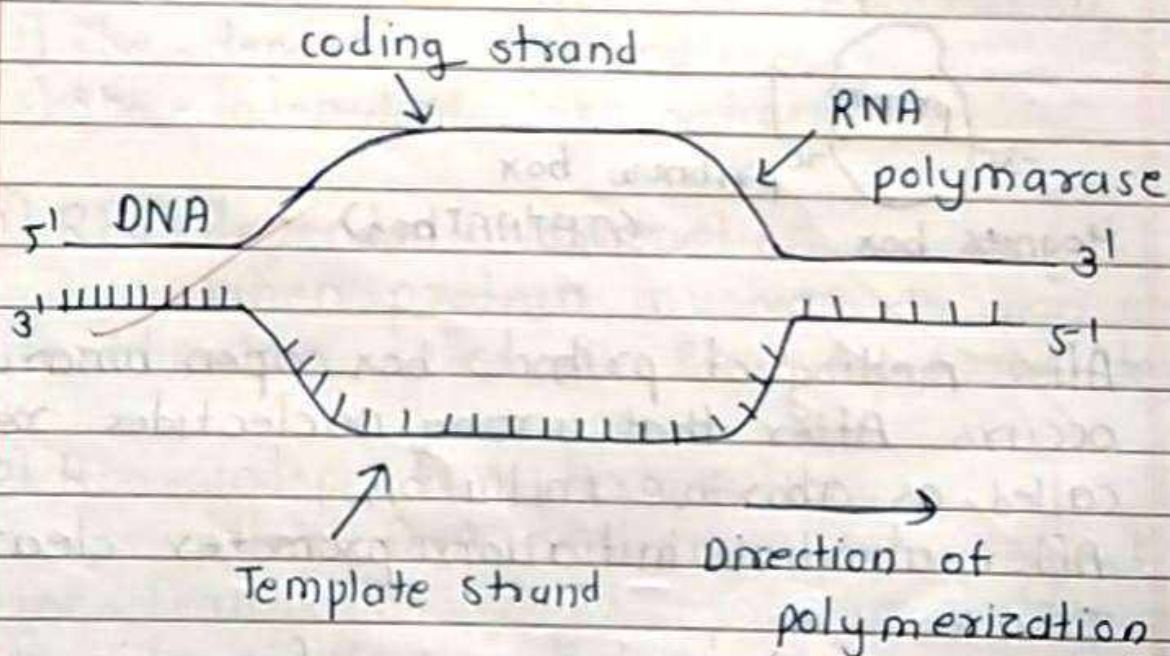 coding strand
RNA
polymarase
5' DNA
3'
3'
5'
Template strand
Direction of
polymerization